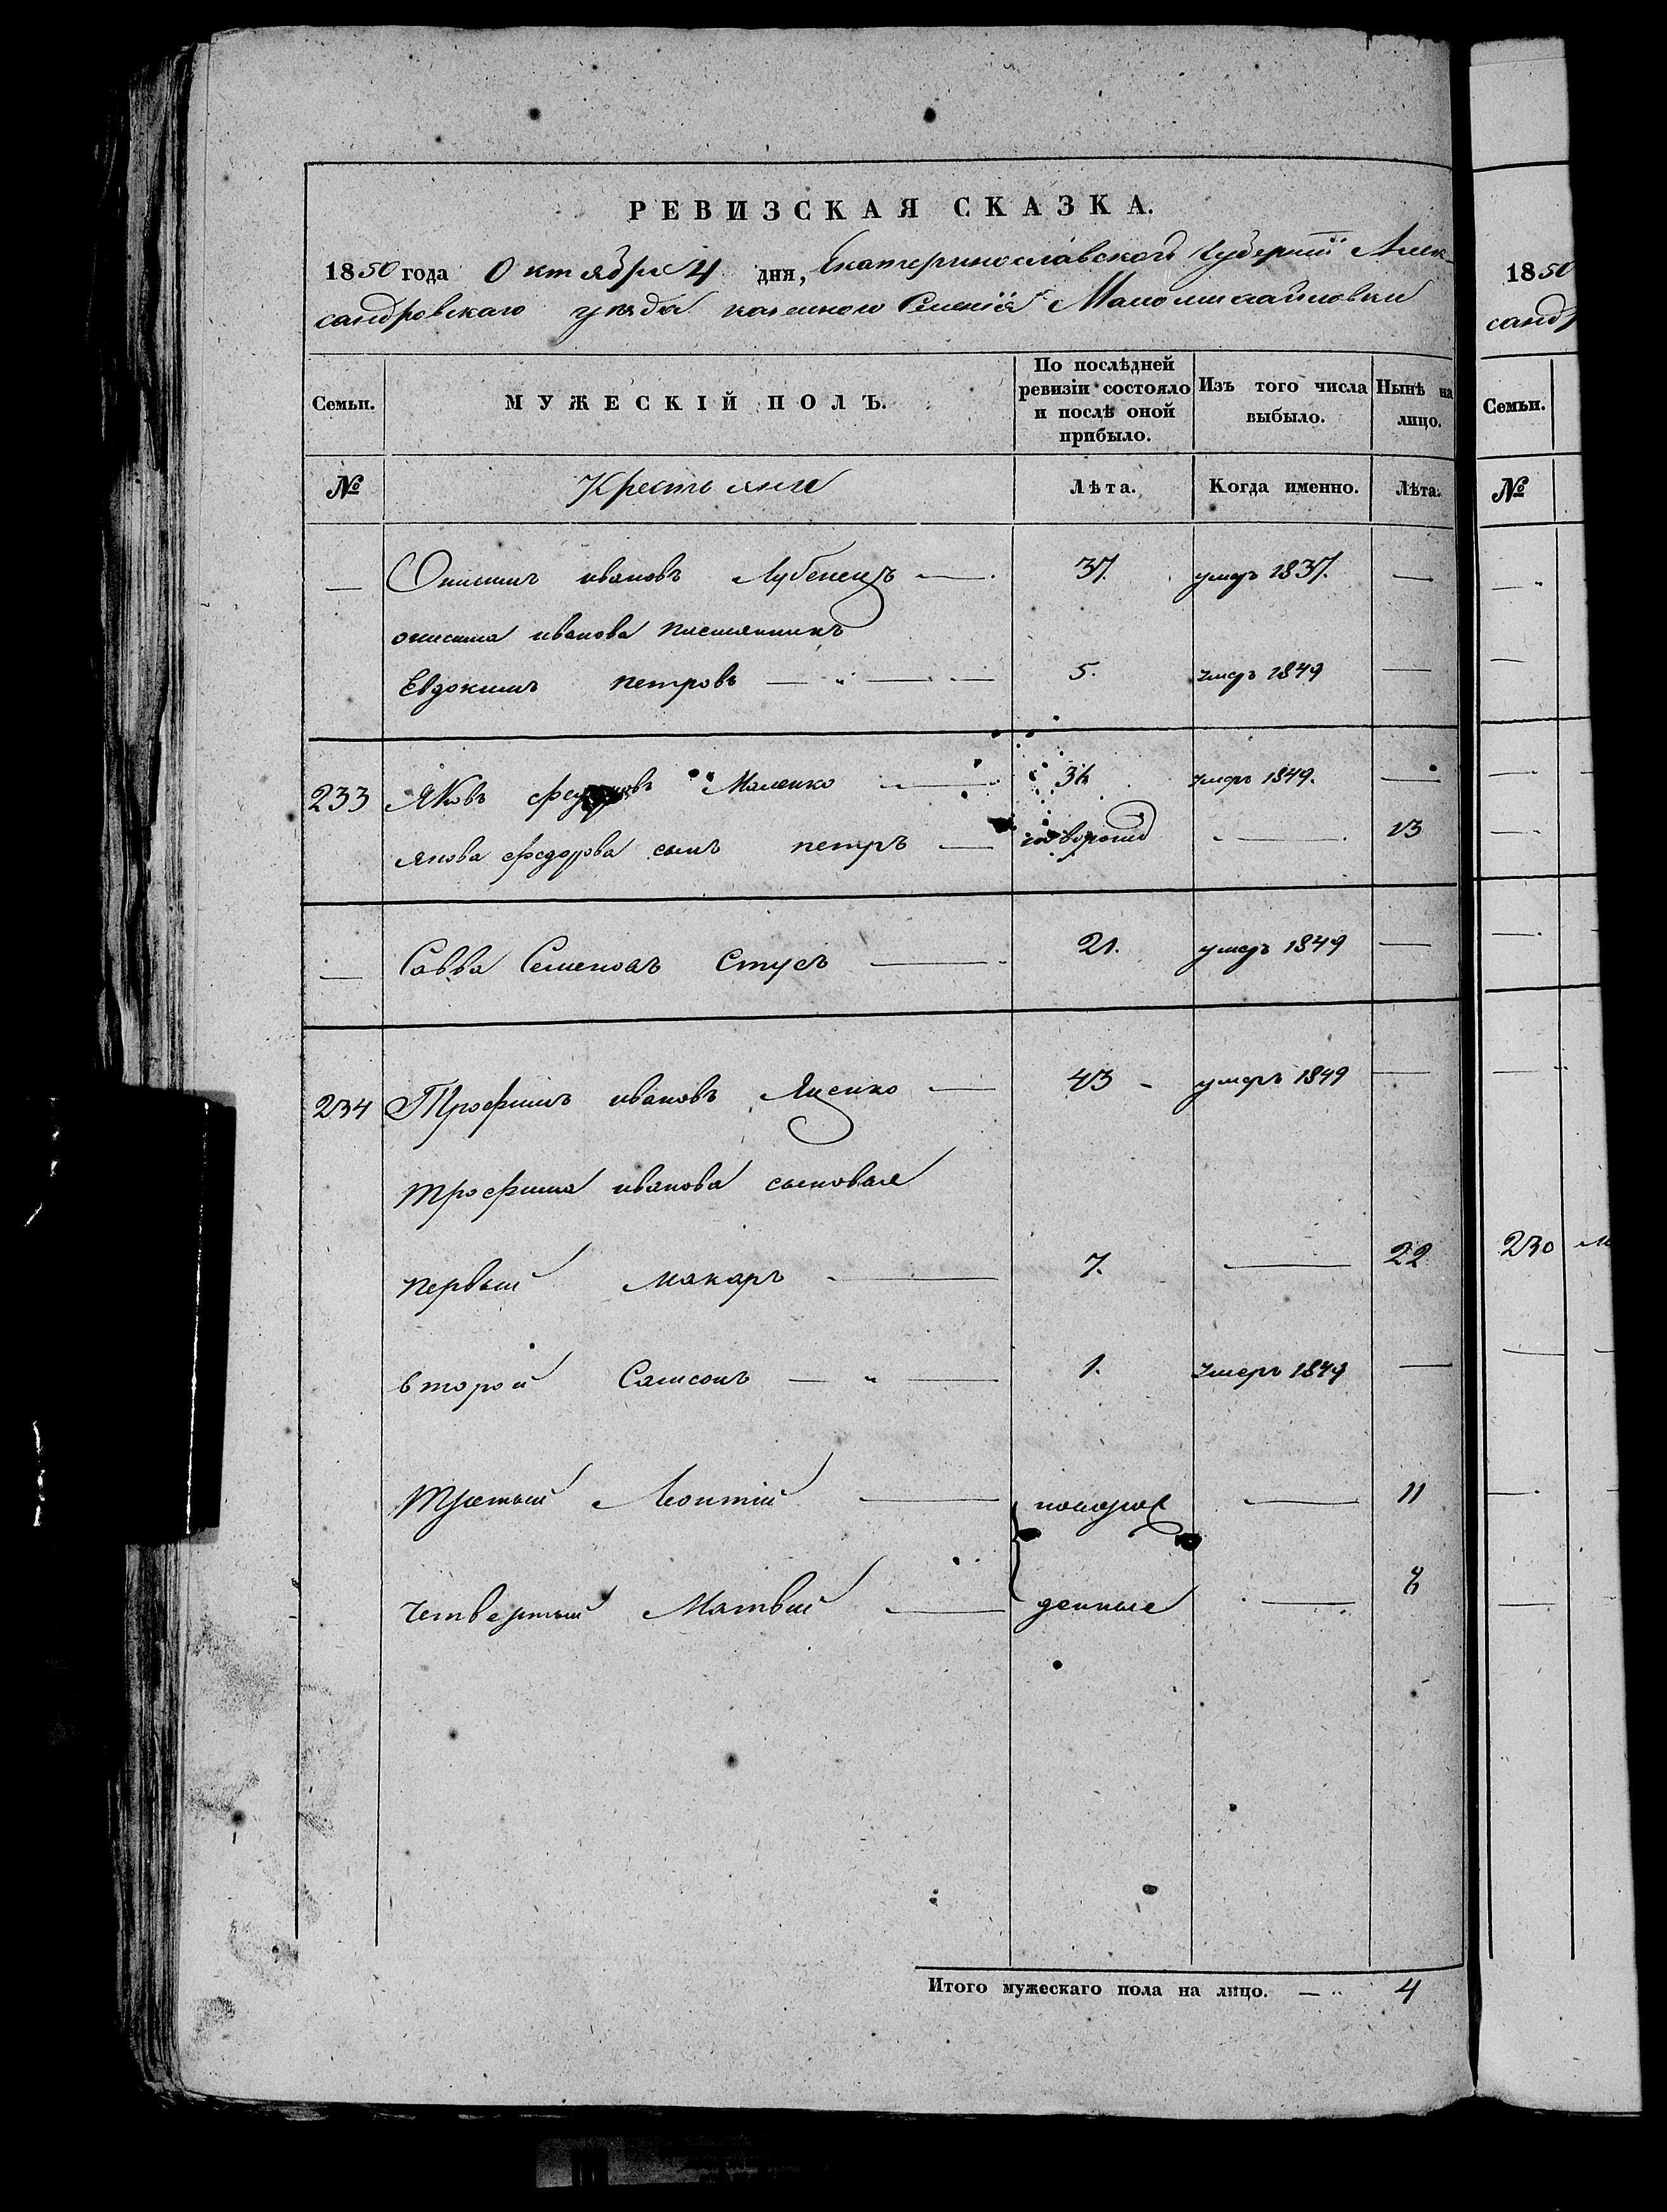 РЕВИЗСКАЯ СКАЗКА.
1850 года Октября 4 дня, Екатеринославской губернии Алек-
сандровскаго уезда казенного Селенія Маломихайловки
Семьи. МУЖЕСКІЙ ПОЛЪ. По послѣдней ревизіи состояло и послѣ оной прибыло. Изъ того числа выбыло. Нынѣ на лицо.
№ Крестьяне Лѣта. Когда именно. Лѣта.
— Онисимъ ивановъ Лубенецъ — 37. умеръ 1837. —
онисима иванова племянникъ
Евдокимъ петровъ — „ — 5. умеръ 1849 —
233 Яковъ федоровъ Маленко — умеръ 1849. —
якова федорова сынъ петръ — новорожд — 13
— Савва Семеновъ Стусъ — 21. умеръ 1849 —
234 Трофимъ ивановъ Яценко — 43 - умеръ 1849 —
трофима иванова сыновья
первый макаръ — 7. — 22
второй Самсонъ — „ — 1. умеръ 1849 —
третый Леонтій — новорож — 11
четвертый Матвій — денные —
Итого мужескаго пола на лицо. — 4
1850
санд
Семьи.
№
230